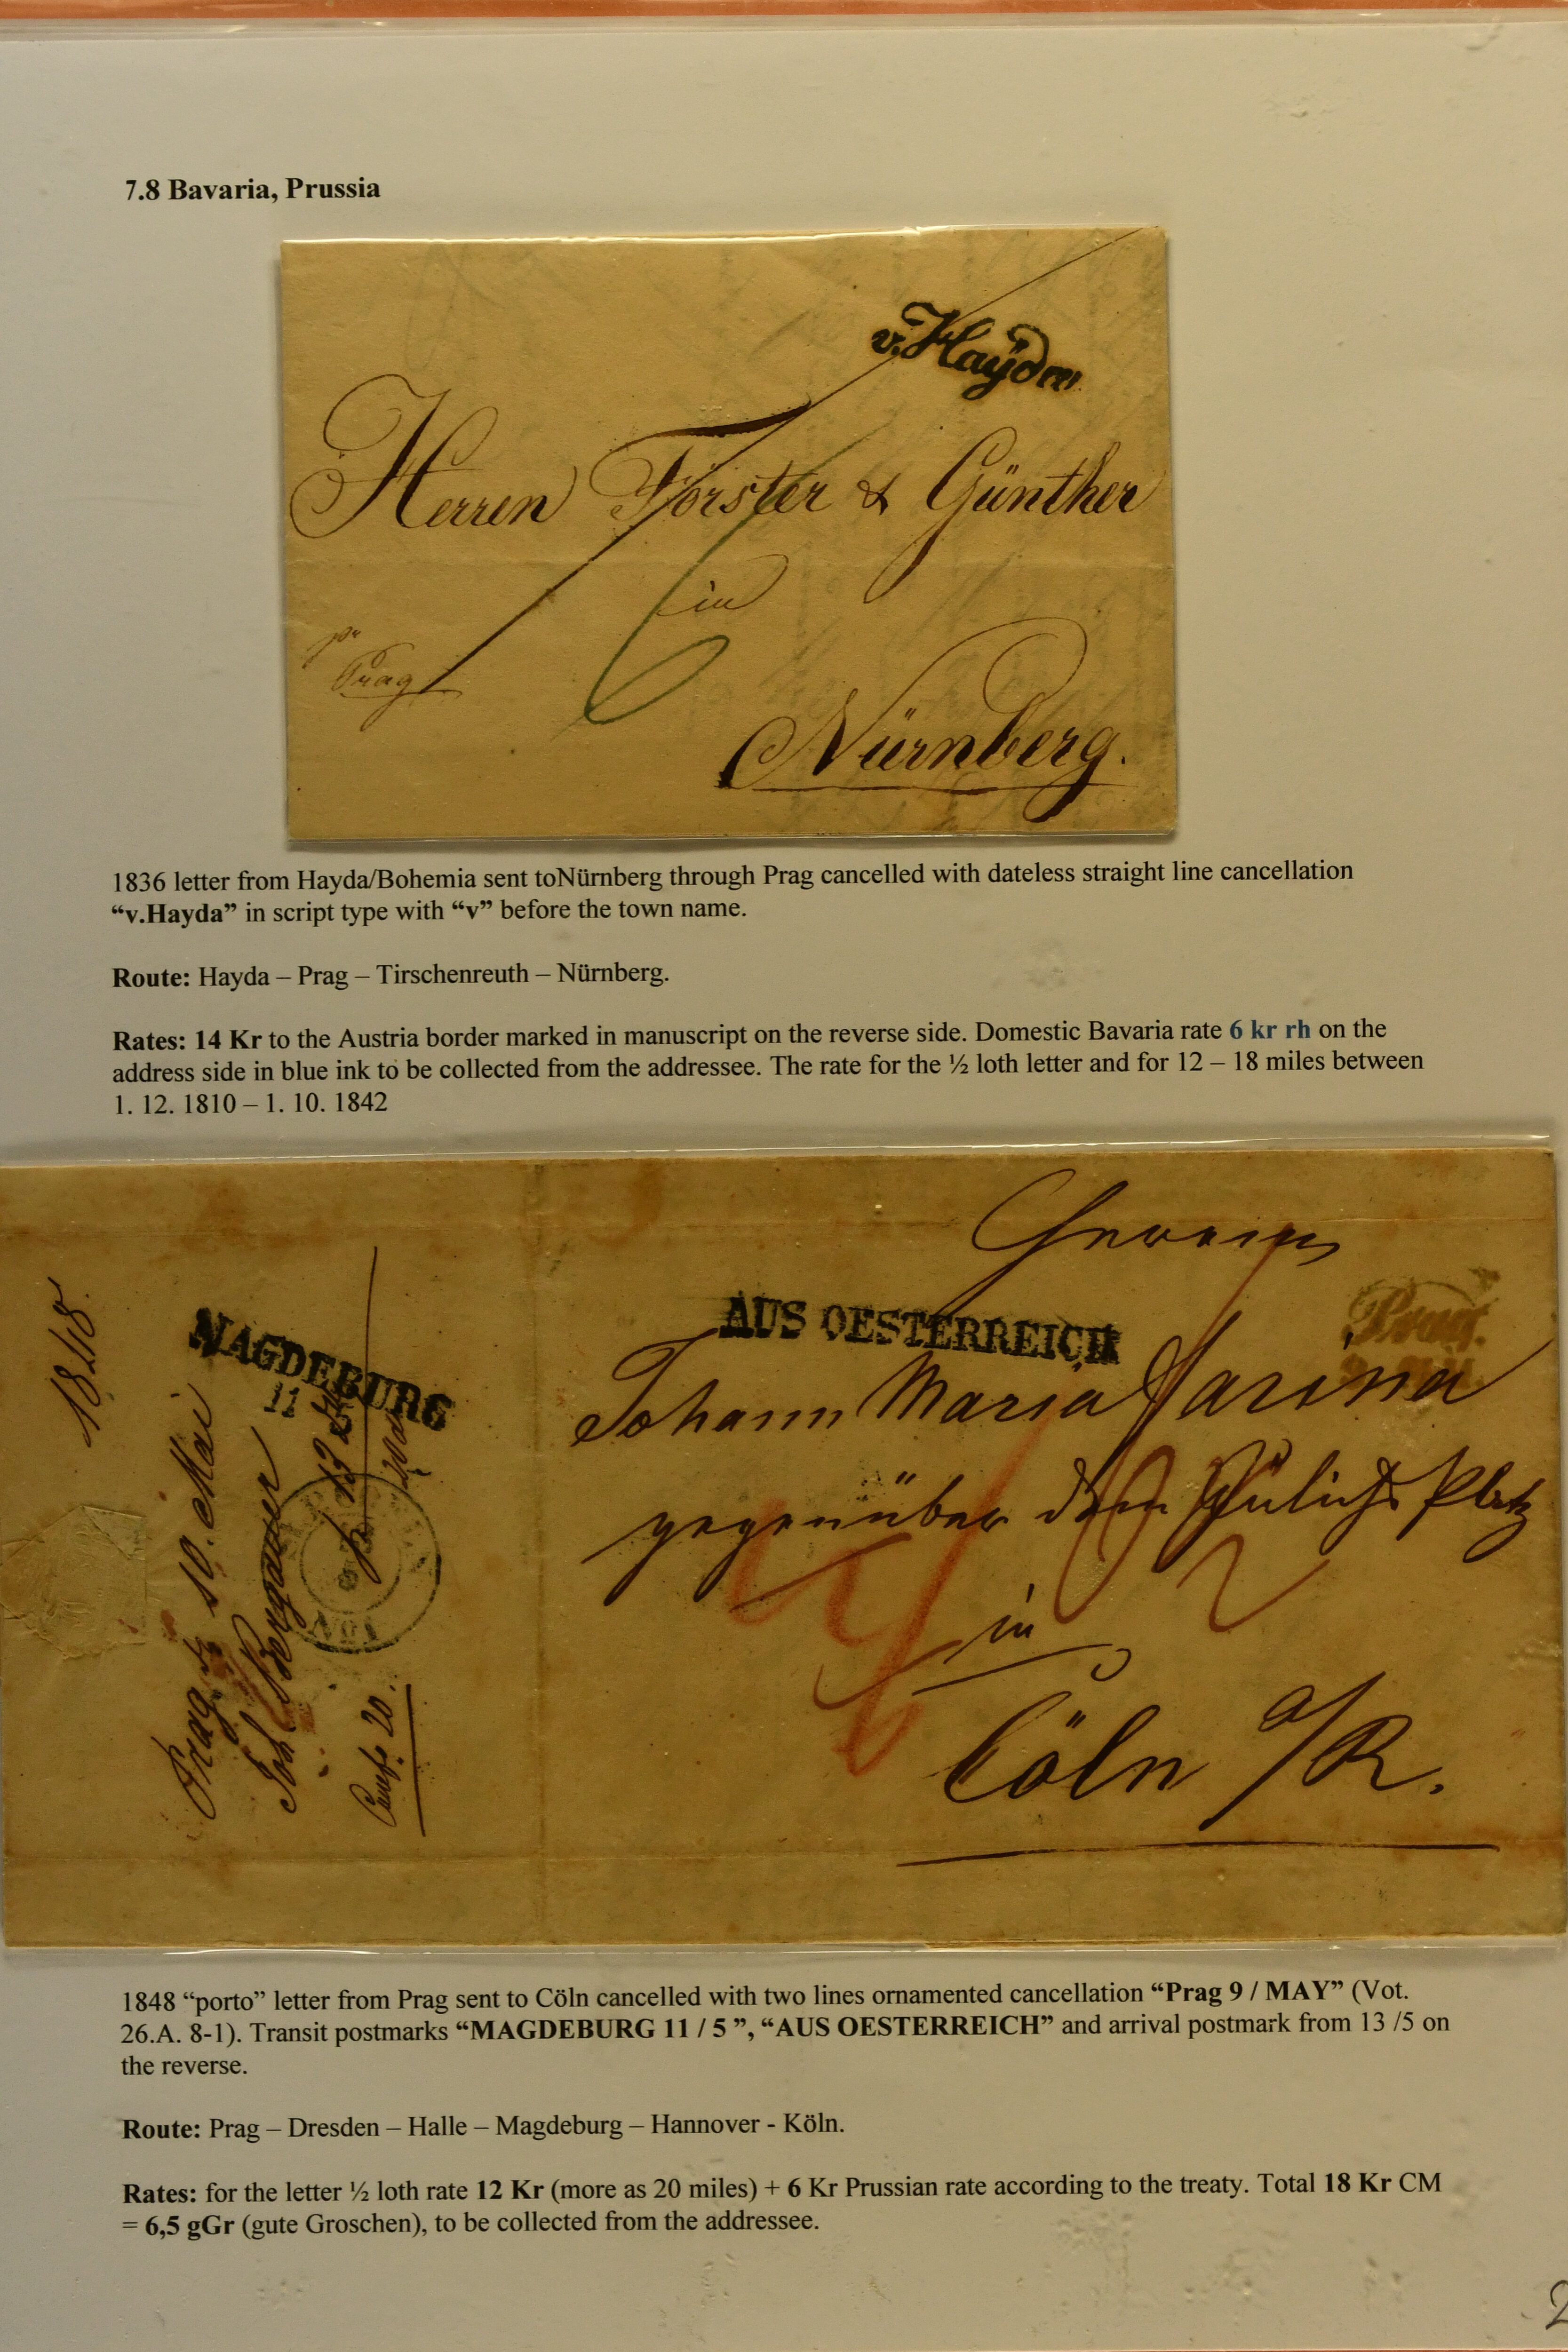 7.8 Bavaria, Prussia
v. Hayda
Herren Förster & Günther
in
pr
Prag
6
Nürnberg.
1836 letter from Hayda/Bohemia sent toNürnberg through Prag cancelled with dateless straight line cancellation
“v.Hayda” in script type with “v” before the town name.
Route: Hayda – Prag – Tirschenreuth – Nürnberg.
Rates: 14 Kr to the Austria border marked in manuscript on the reverse side. Domestic Bavaria rate 6 kr rh on the
address side in blue ink to be collected from the addressee. The rate for the ½ loth letter and for 12 – 18 miles between
1. 12. 1810 – 1. 10. 1842
1848.
MAGDEBURG
11
Prag 10. Mai
Joh Bergauer
20.
AUS OESTERREICH
Prag.
Johann Maria Farina
gegenüber dem Jülichs Platz
in
Cöln a/R.
1848 “porto” letter from Prag sent to Cöln cancelled with two lines ornamented cancellation “Prag 9 / MAY” (Vot.
26.A. 8-1). Transit postmarks “MAGDEBURG 11 / 5 ”, “AUS OESTERREICH” and arrival postmark from 13 /5 on
the reverse.
Route: Prag – Dresden – Halle – Magdeburg – Hannover - Köln.
Rates: for the letter ½ loth rate 12 Kr (more as 20 miles) + 6 Kr Prussian rate according to the treaty. Total 18 Kr CM
= 6,5 gGr (gute Groschen), to be collected from the addressee.
2